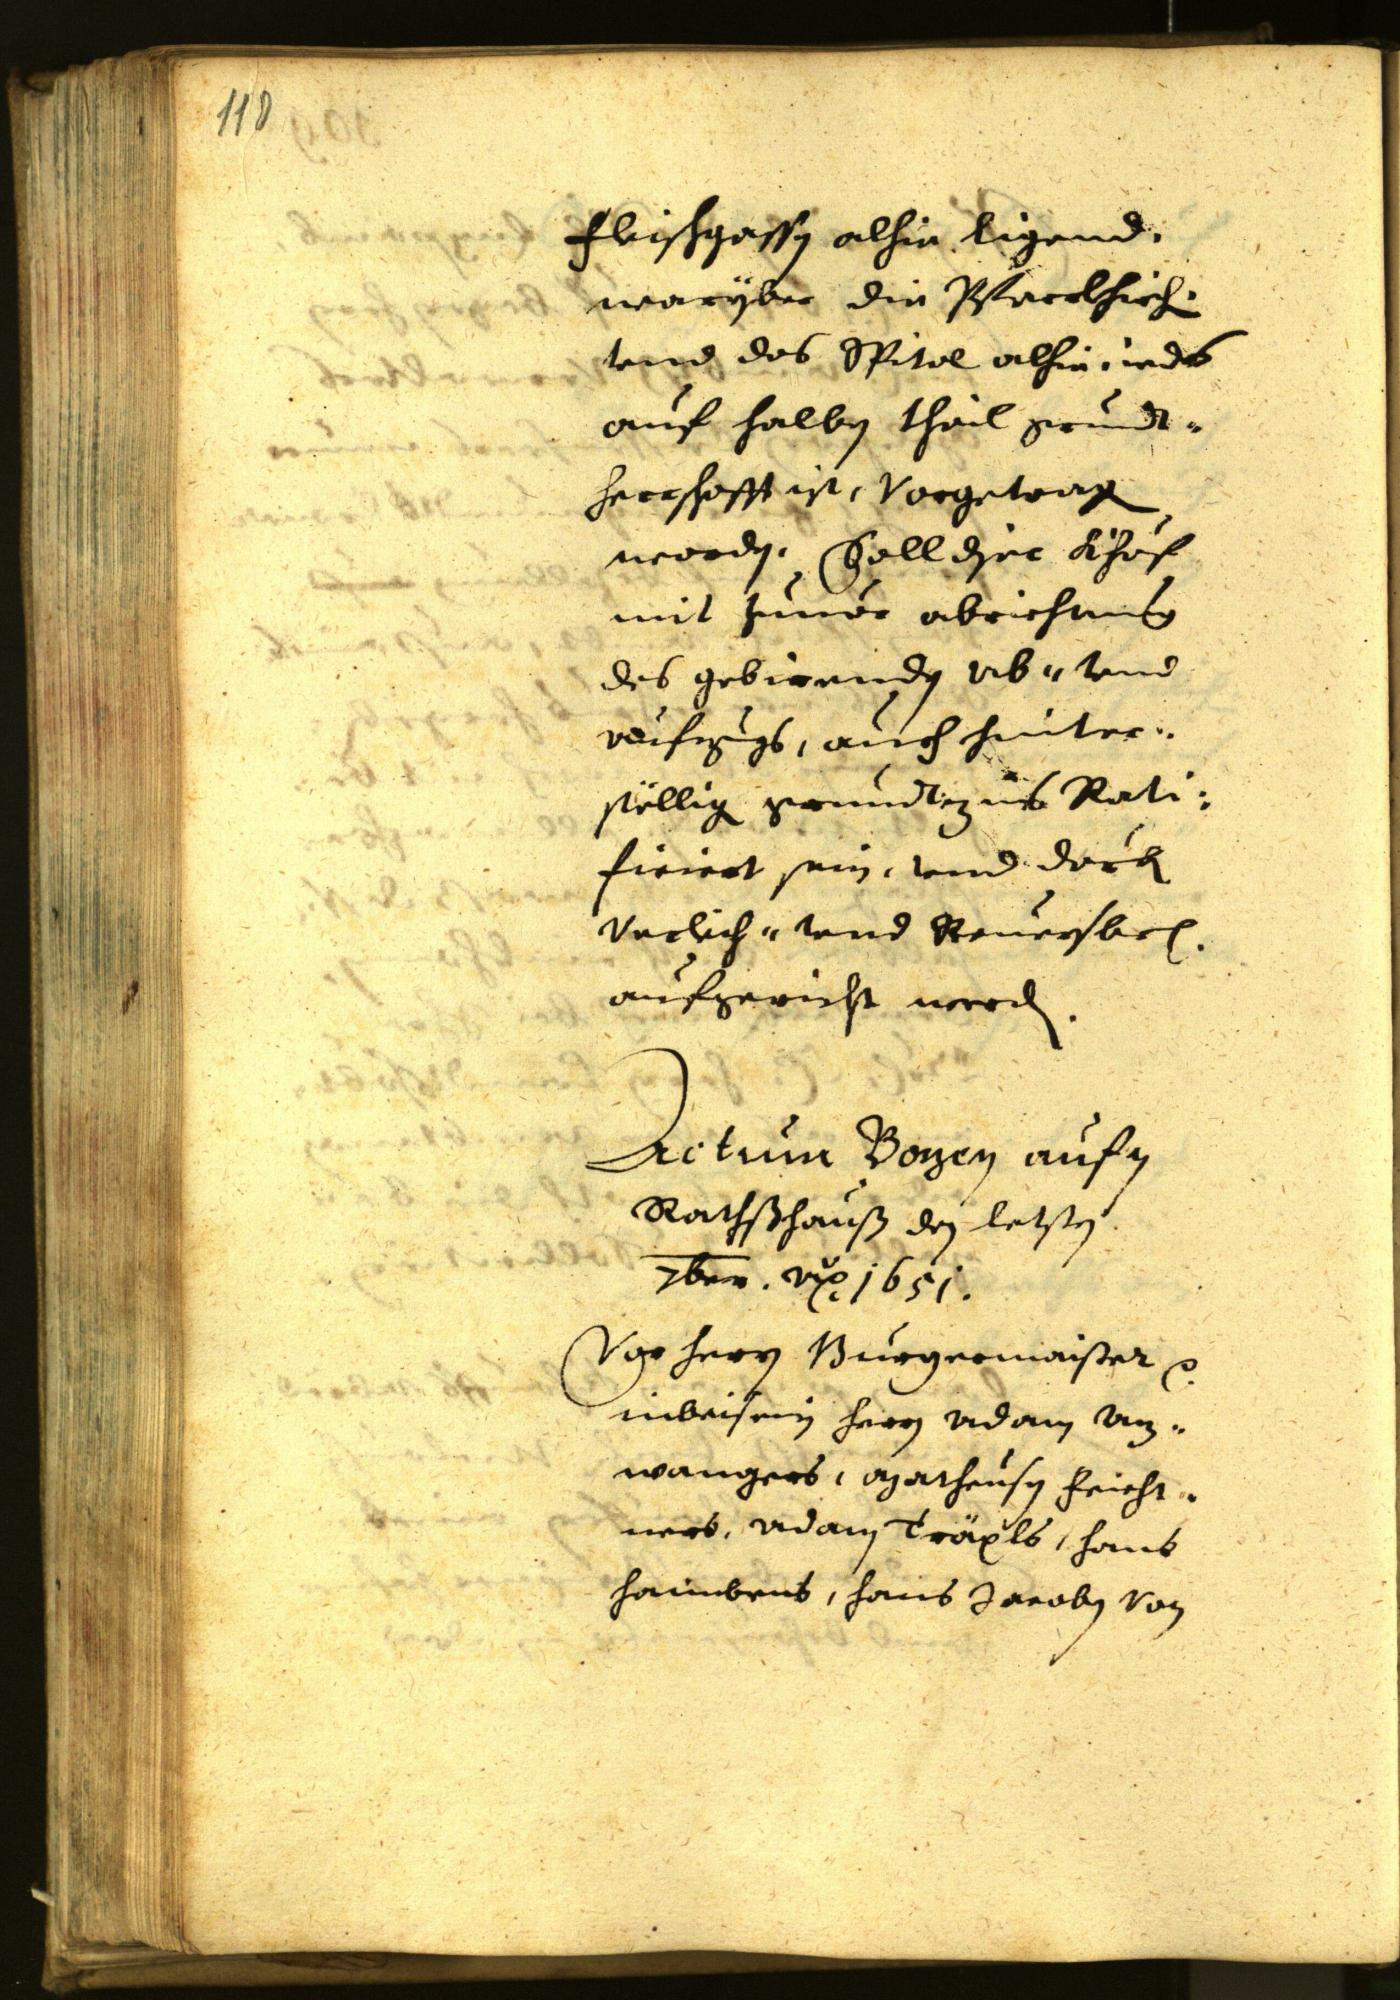 118
Fleischgassn alhie ligend.
warüber die Pfarrkhirch:
vnd das Spital alhie, iedes
auf halben thail grundt-
herrschafft ist, Vorgetragen
worden. Soll diser Khauf
mit zuuor abrichtung
des gebirenden Ab- vnd
Aufzugs, auch hinter-
stellig grundtzins Rati:
ficiert sein, vnd dariber
Verleich- vnd Reuersbrief
aufgericht werden.
Actum Bozen aufn
Rathßhauß den letsten
7ber. Ao. 1651.
Vor herrn Burgermaister &c.
inbeisein herrn Adam An-
wangers, Matheusn Feicht-
ners, Adam Träxls, hans
haimbens, hans Jacobn Von